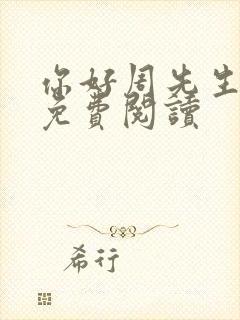 你好周先生
免費閱讀
希行